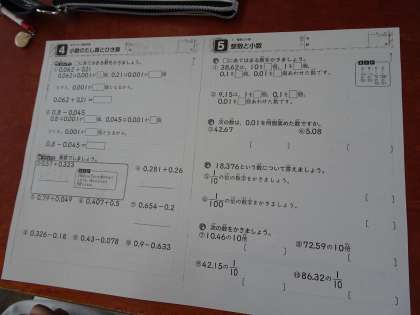 4 小数のたし算とひき算
□にあてはまる数をかきましょう。
① 0.062+0.21
0.062は0.001が□個、0.21は0.001が□個
0.062+0.21=□
② 0.8-0.045
0.8は0.001が□個、0.045は0.001が□個
0.8-0.045=□
筆算でしましょう。
③ 0.57+0.323
④ 0.281+0.26
⑤ 0.79+0.049
⑥ 0.407+0.5
⑦ 0.654-0.2
⑧ 0.326-0.18
⑨ 0.43-0.078
⑩ 0.9-0.633
5 整数と小数
□にあてはまる数をかきましょう。
① 38.62は、10を□個、1を□個、
0.1を□個、0.01を□個あわせた数です。
② 9.15は、1を□個、0.1を□個、
0.01を□個あわせた数です。
次の数は、0.01を何個集めた数ですか。
③ 42.67
④ 5.08
18.376という数について答えましょう。
⑤ 1/10の位の数字をかきましょう。
⑥ 1/100の位の数字をかきましょう。
次の数をかきましょう。
⑦ 10.46の10倍
⑧ 72.59の10倍
⑨ 42.15の1/10
⑩ 86.32の1/10